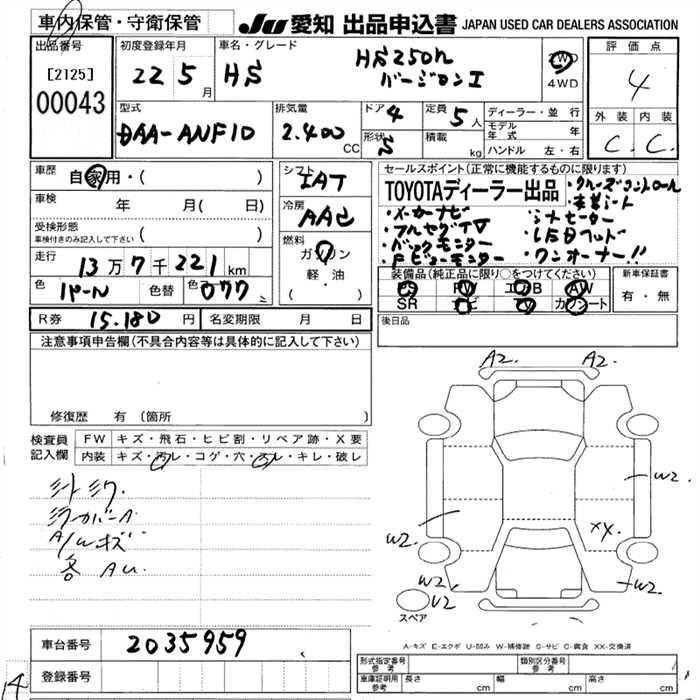 車内保管・守衛保管
JU 愛知 出品申込書 JAPAN USED CAR DEALERS ASSOCIATION
出品番号
[2125]
00043
初度登録年月
22 5 月
車名・グレード
HS HS250h
バージョンI
2WD
4WD
評価点
4
外装 内装
C. C.
型式
DAA-ANF10
排気量
2.400 CC
ドア 4
形状 S
定員 5 人
積載 kg
ディーラー・並行
モデル年式 年
ハンドル 左・右
車歴
自家用・( )
車検
年 月( 日)
受検形態
車検付きのみ記入して下さい ( )
走行
13万7千221 km
色 パール 色替 色No. 077
シフト
IAT
冷房
AAC
燃料
ガソリン
軽・油
( )
セールスポイント(正常に機能するものに限ります)
TOYOTAディーラー出品
・クルーズコントロール
・本革シート
・メーカーナビ
・シートヒーター
・フルセグTV
・LEDヘッド
・バックモニター
・ワンオーナー!!
・Fビューモニター
装備品(純正品に限り○をつけてください)
PS PW エアB AW
SR ナビ TV カワシート
新車保証書
有・無
後日品
R券 15.180 円 名変期限 月 日
注意事項申告欄(不具合内容等は具体的に記入して下さい)
修復歴 有(箇所 )
検査員
記入欄
FW キズ・飛石・ヒビ割・リペア跡・X要
内装 キズ・汚レ・コゲ・穴・スレ・キレ・破レ
ミラーカバーA
A/Wキズ
各AU.
A2. A2.
W2.
W2.
XX.
W2. W2.
U2
スペア
A-キズ E-エクボ U-凹み W-補修跡 S-サビ C-腐食 XX-交換済
車台番号 2035959
登録番号
型式指定番号
参考
類別区分番号
参考
車庫証明用
参考
長さ cm 幅 cm 高さ cm
14